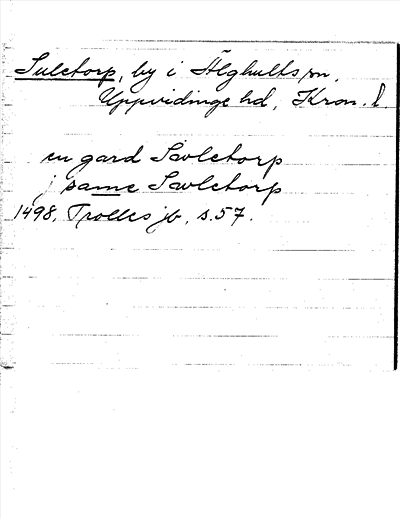 Suletorp, by i Älghults sn,
Uppvidinge hd, Kron. l
en gard Swletorp
j same Swletorp
1498. Trolles jb, s. 57.